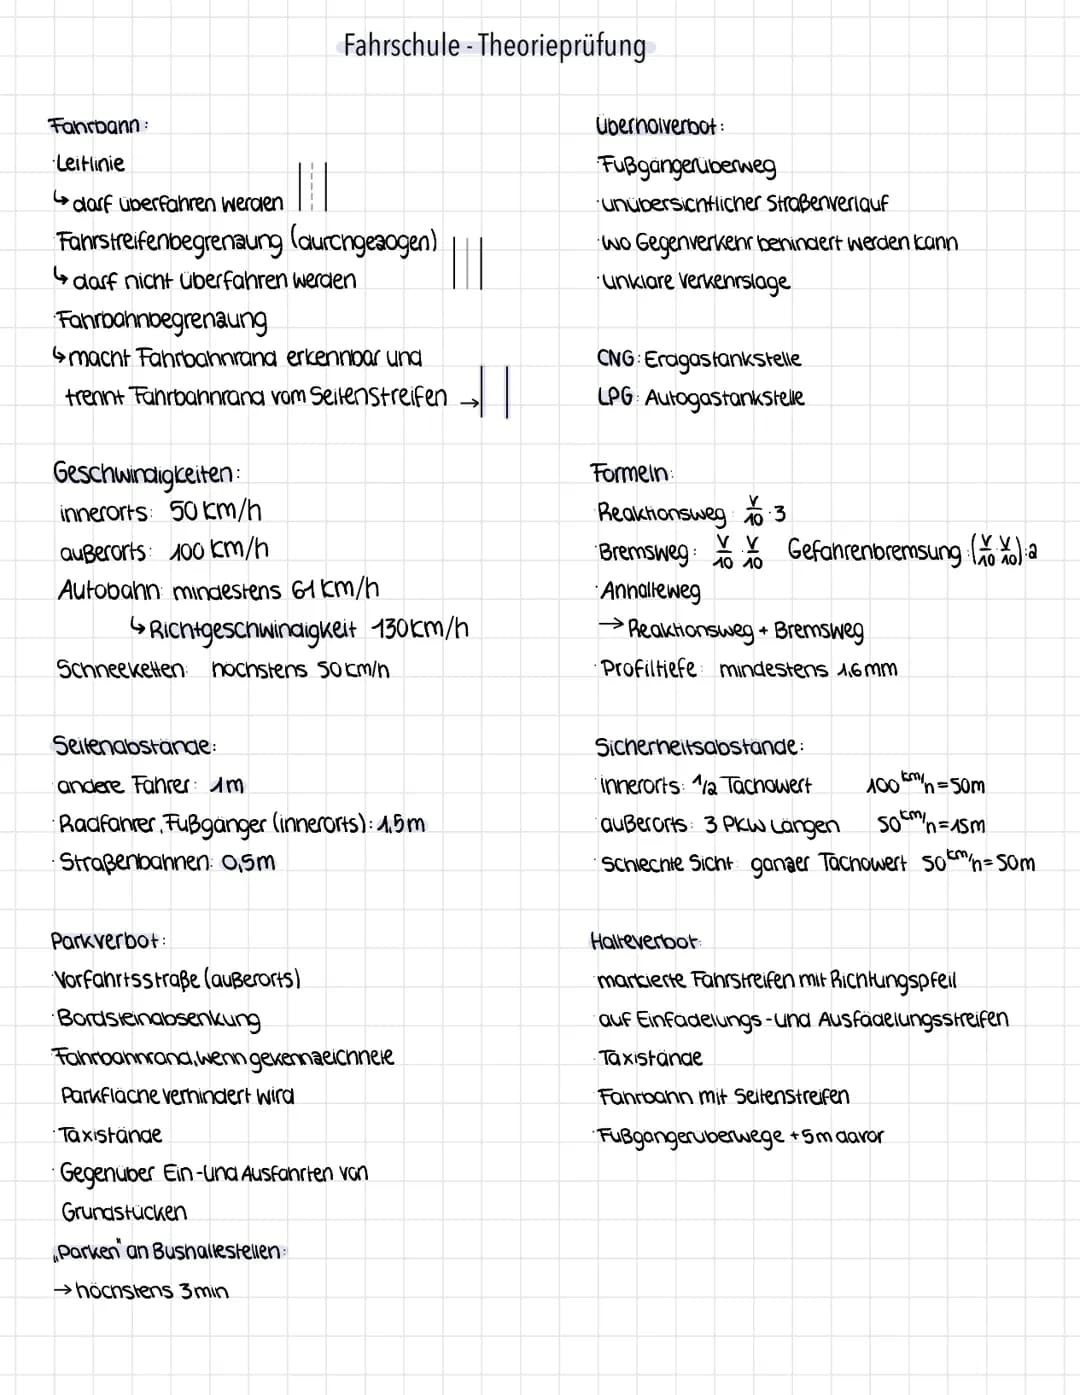 Fahrschule - Theorieprüfung
Fahrbahn:
·Leitlinie
↳ darf überfahren werden
Fahrstreifenbegrenzung (durchgezogen)
↳ darf nicht überfahren werden
Fahrbahnbegrenzung
↳ macht Fahrbahnrand erkennbar und
trennt Fahrbahnrand vom Seitenstreifen →
Geschwindigkeiten:
innerorts: 50 km/h
außerorts: 100 km/h
Autobahn: mindestens 61 km/h
↳ Richtgeschwindigkeit 130 km/h
Schneeketten: höchstens 50 km/h
Seitenabstände:
·andere Fahrer: 1m
·Radfahrer, Fußgänger (innerorts): 1,5m
·Straßenbahnen: 0,5m
Parkverbot:
·Vorfahrtsstraße (außerorts)
·Bordsteinabsenkung
·Fahrbahnrand, wenn gekennzeichnete
Parkfläche verhindert wird
·Taxistände
·Gegenüber Ein- und Ausfahrten von
Grundstücken
„Parken" an Bushaltestellen:
→ höchstens 3 min
Überholverbot:
·Fußgängerüberweg
·unübersichtlicher Straßenverlauf
·wo Gegenverkehr behindert werden kann
·unklare Verkehrslage
CNG: Erdgastankstelle
LPG: Autogastankstelle
Formeln:
·Reaktionsweg: v/10 · 3
·Bremsweg: v/10 · v/10 Gefahrenbremsung: (v/10 · v/10) : 2
·Anhalteweg
→ Reaktionsweg + Bremsweg
·Profiltiefe: mindestens 1,6 mm
Sicherheitsabstände:
·innerorts: 1/2 Tachowert 100 km/h = 50m
·außerorts: 3 PKW Längen 50 km/h = 15m
·schlechte Sicht: ganzer Tachowert 50 km/h = 50m
Halteverbot:
·markierte Fahrstreifen mit Richtungspfeil
·auf Einfädelungs- und Ausfädelungsstreifen
·Taxistände
·Fahrbahn mit Seitenstreifen
·Fußgängerüberwege + 5m davor